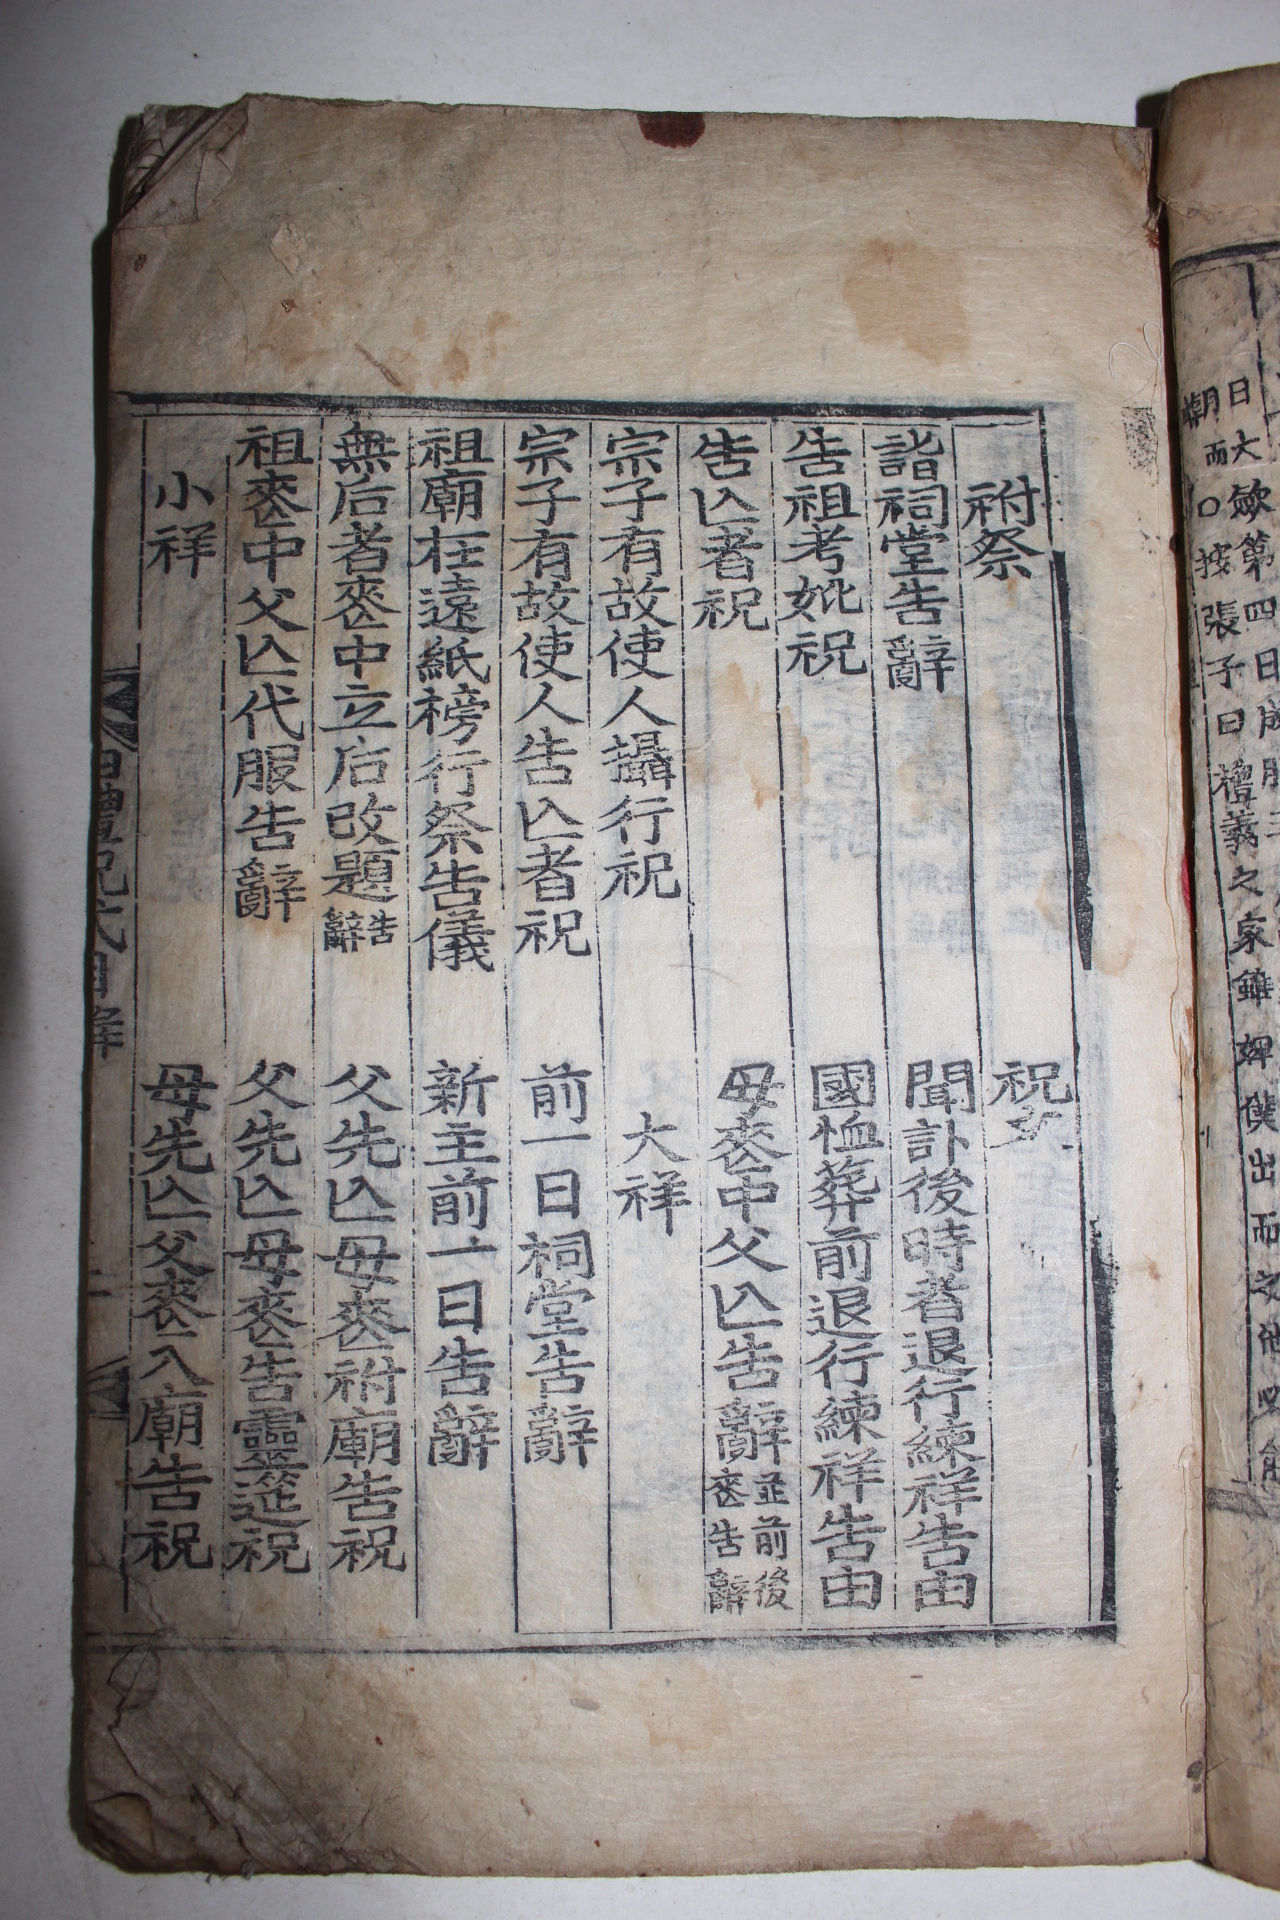 日大斂第四日成服
祔祭
詣祠堂告辭
告祖考妣祝
告亾者祝
宗子有故使人攝行祝
宗子有故使人告亾者祝
祖廟在遠紙榜行祭告儀
無后者喪中立后改題告辭
祖喪中父亾代服告辭
小祥
祝文
聞訃後時者退行練祥告由
國恤葬前退行練祥告由
母喪中父亾告辭並前後喪告辭
大祥
前一日祠堂告辭
新主前一日告辭
父先亾母喪祔廟告祝
父先亾母喪告靈筵祝
母先亾父喪入廟告祝